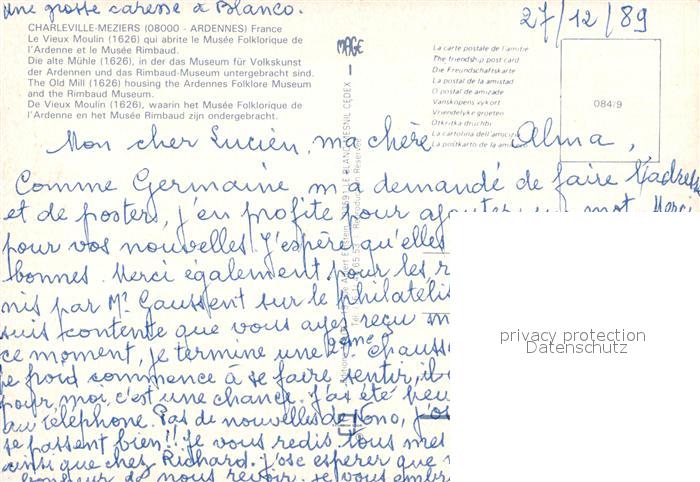 une grosse caresse à Blanco.
27/12/89
CHARLEVILLE-MEZIERS (08000 - ARDENNES) France
Le Vieux Moulin (1626) qui abrite le Musée Folklorique de
l'Ardenne et le Musée Rimbaud.
Die alte Mühle (1626), in der das Museum für Volkskunst
der Ardennen und das Rimbaud-Museum untergebracht sind.
The Old Mill (1626) housing the Ardennes Folklore Museum
and the Rimbaud Museum.
De Vieux Moulin (1626), waarin het Musée Folklorique de
l'Ardenne en het Musée Rimbaud zijn ondergebracht.
MAGE
La carte postale de l'amitié
The friendship post card
Die Freundschaftskarte
La postal de la amistad
O postal de amizade
Vanskapens vykort
Vriendelyke groeten
Otkritka druchbi
La cartolina dell'amicizia
La postkarto de la
084/9
Mon cher Lucien, ma chère Alma,
Comme Germaine m'a demandé de faire l'adresse
et de poster, j'en profite pour ajouter un mot. Merci
pour vos nouvelles! J'espère qu'elles
bonnes. Merci également pour les r
nis par Mr Gaussent sur le philatélis
suis contente que vous ayez reçu m
ce moment, je termine une 2ème P. chauss
le froid commence à se faire sentir, il
pour moi, c'est une chance. J'ai été
au téléphone. Pas de nouvelles de Nono, j'os
se passent bien!! Je vous redis tous mes
ainsi que chez Richard. J'ose espérer que
bonheur de nous revoir. Je vous embr
privacy protection
Datenschutz